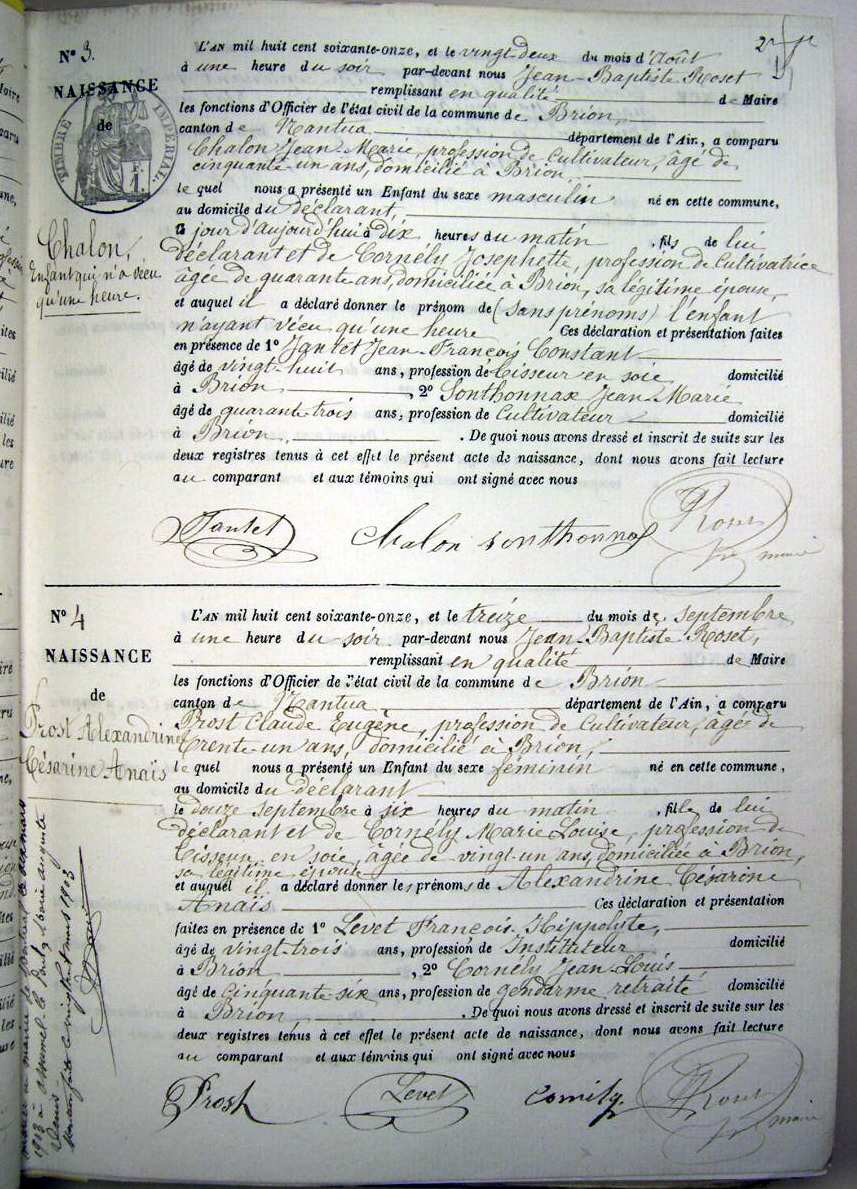 N° 3.
NAISSANCE
de
TIMBRE IMPÉRIAL
Chalon,
Enfant qui n'a vécu
qu'une heure.
L'AN mil huit cent soixante-onze, et le vingt deux du mois d'Août
à une heure du soir par-devant nous Jean Baptiste Roset
remplissant en qualité de Maire
les fonctions d'Officier de l'état civil de la commune de Brion,
canton de Nantua département de l'Ain, a comparu
Chalon Jean Marie, profession de Cultivateur, âgé de
cinquante-un ans, domicilié à Brion,
le quel nous a présenté un Enfant du sexe masculin né en cette commune,
au domicile du déclarant
jour d'aujourd'hui à dix heures du matin, fils de lui
déclarant et de Cornély Josephette, profession de Cultivatrice
âgée de quarante ans, domiciliée à Brion, sa légitime épouse,
et auquel il a déclaré donner le prénom de (sans prénoms) l'enfant
n'ayant vécu qu'une heure Ces déclaration et présentation faites
en présence de 1° Jantet Jean François Constant
âgé de vingt-huit ans, profession de Tisseur en soie domicilié
à Brion, 2° Sonthonnax Jean Marie
âgé de quarante trois ans, profession de Cultivateur domicilié
à Brion. De quoi nous avons dressé et inscrit de suite sur les
deux registres tenus à cet effet le présent acte de naissance, dont nous avons fait lecture
au comparant et aux témoins qui ont signé avec nous
Jantet Chalon Sonthonnax Roset
maire
N° 4
NAISSANCE
de
Prost Alexandrine
Césarine Anaïs
L'AN mil huit cent soixante-onze, et le treize du mois de septembre
à une heure du soir par-devant nous Jean-Baptiste Roset,
remplissant en qualité de Maire
les fonctions d'Officier de l'état civil de la commune de Brion
canton de Nantua département de l'Ain, a comparu
Prost Claude Eugène, profession de Cultivateur, âgé de
trente-un ans, domicilié à Brion,
le quel nous a présenté un Enfant du sexe féminin né en cette commune,
au domicile du déclarant
le douze septembre à six heures du matin, fille de lui
déclarant et de Cornély Marie Louise, profession de
Tisseur en soie, âgée de vingt-un ans, domiciliée à Brion,
sa légitime épouse
et auquel il a déclaré donner les prénoms de Alexandrine Césarine
Anaïs Ces déclaration et présentation
faites en présence de 1° Levet François Hippolyte,
âgé de vingt-trois ans, profession de Instituteur domicilié
à Brion, 2° Cornély Jean Louis
âgé de Cinquante six ans, profession de gendarme retraité domicilié
à Brion. De quoi nous avons dressé et inscrit de suite sur les
deux registres tenus à cet effet le présent acte de naissance, dont nous avons fait lecture
au comparant et aux témoins qui ont signé avec nous
Prost Levet Cornély Roset
maire